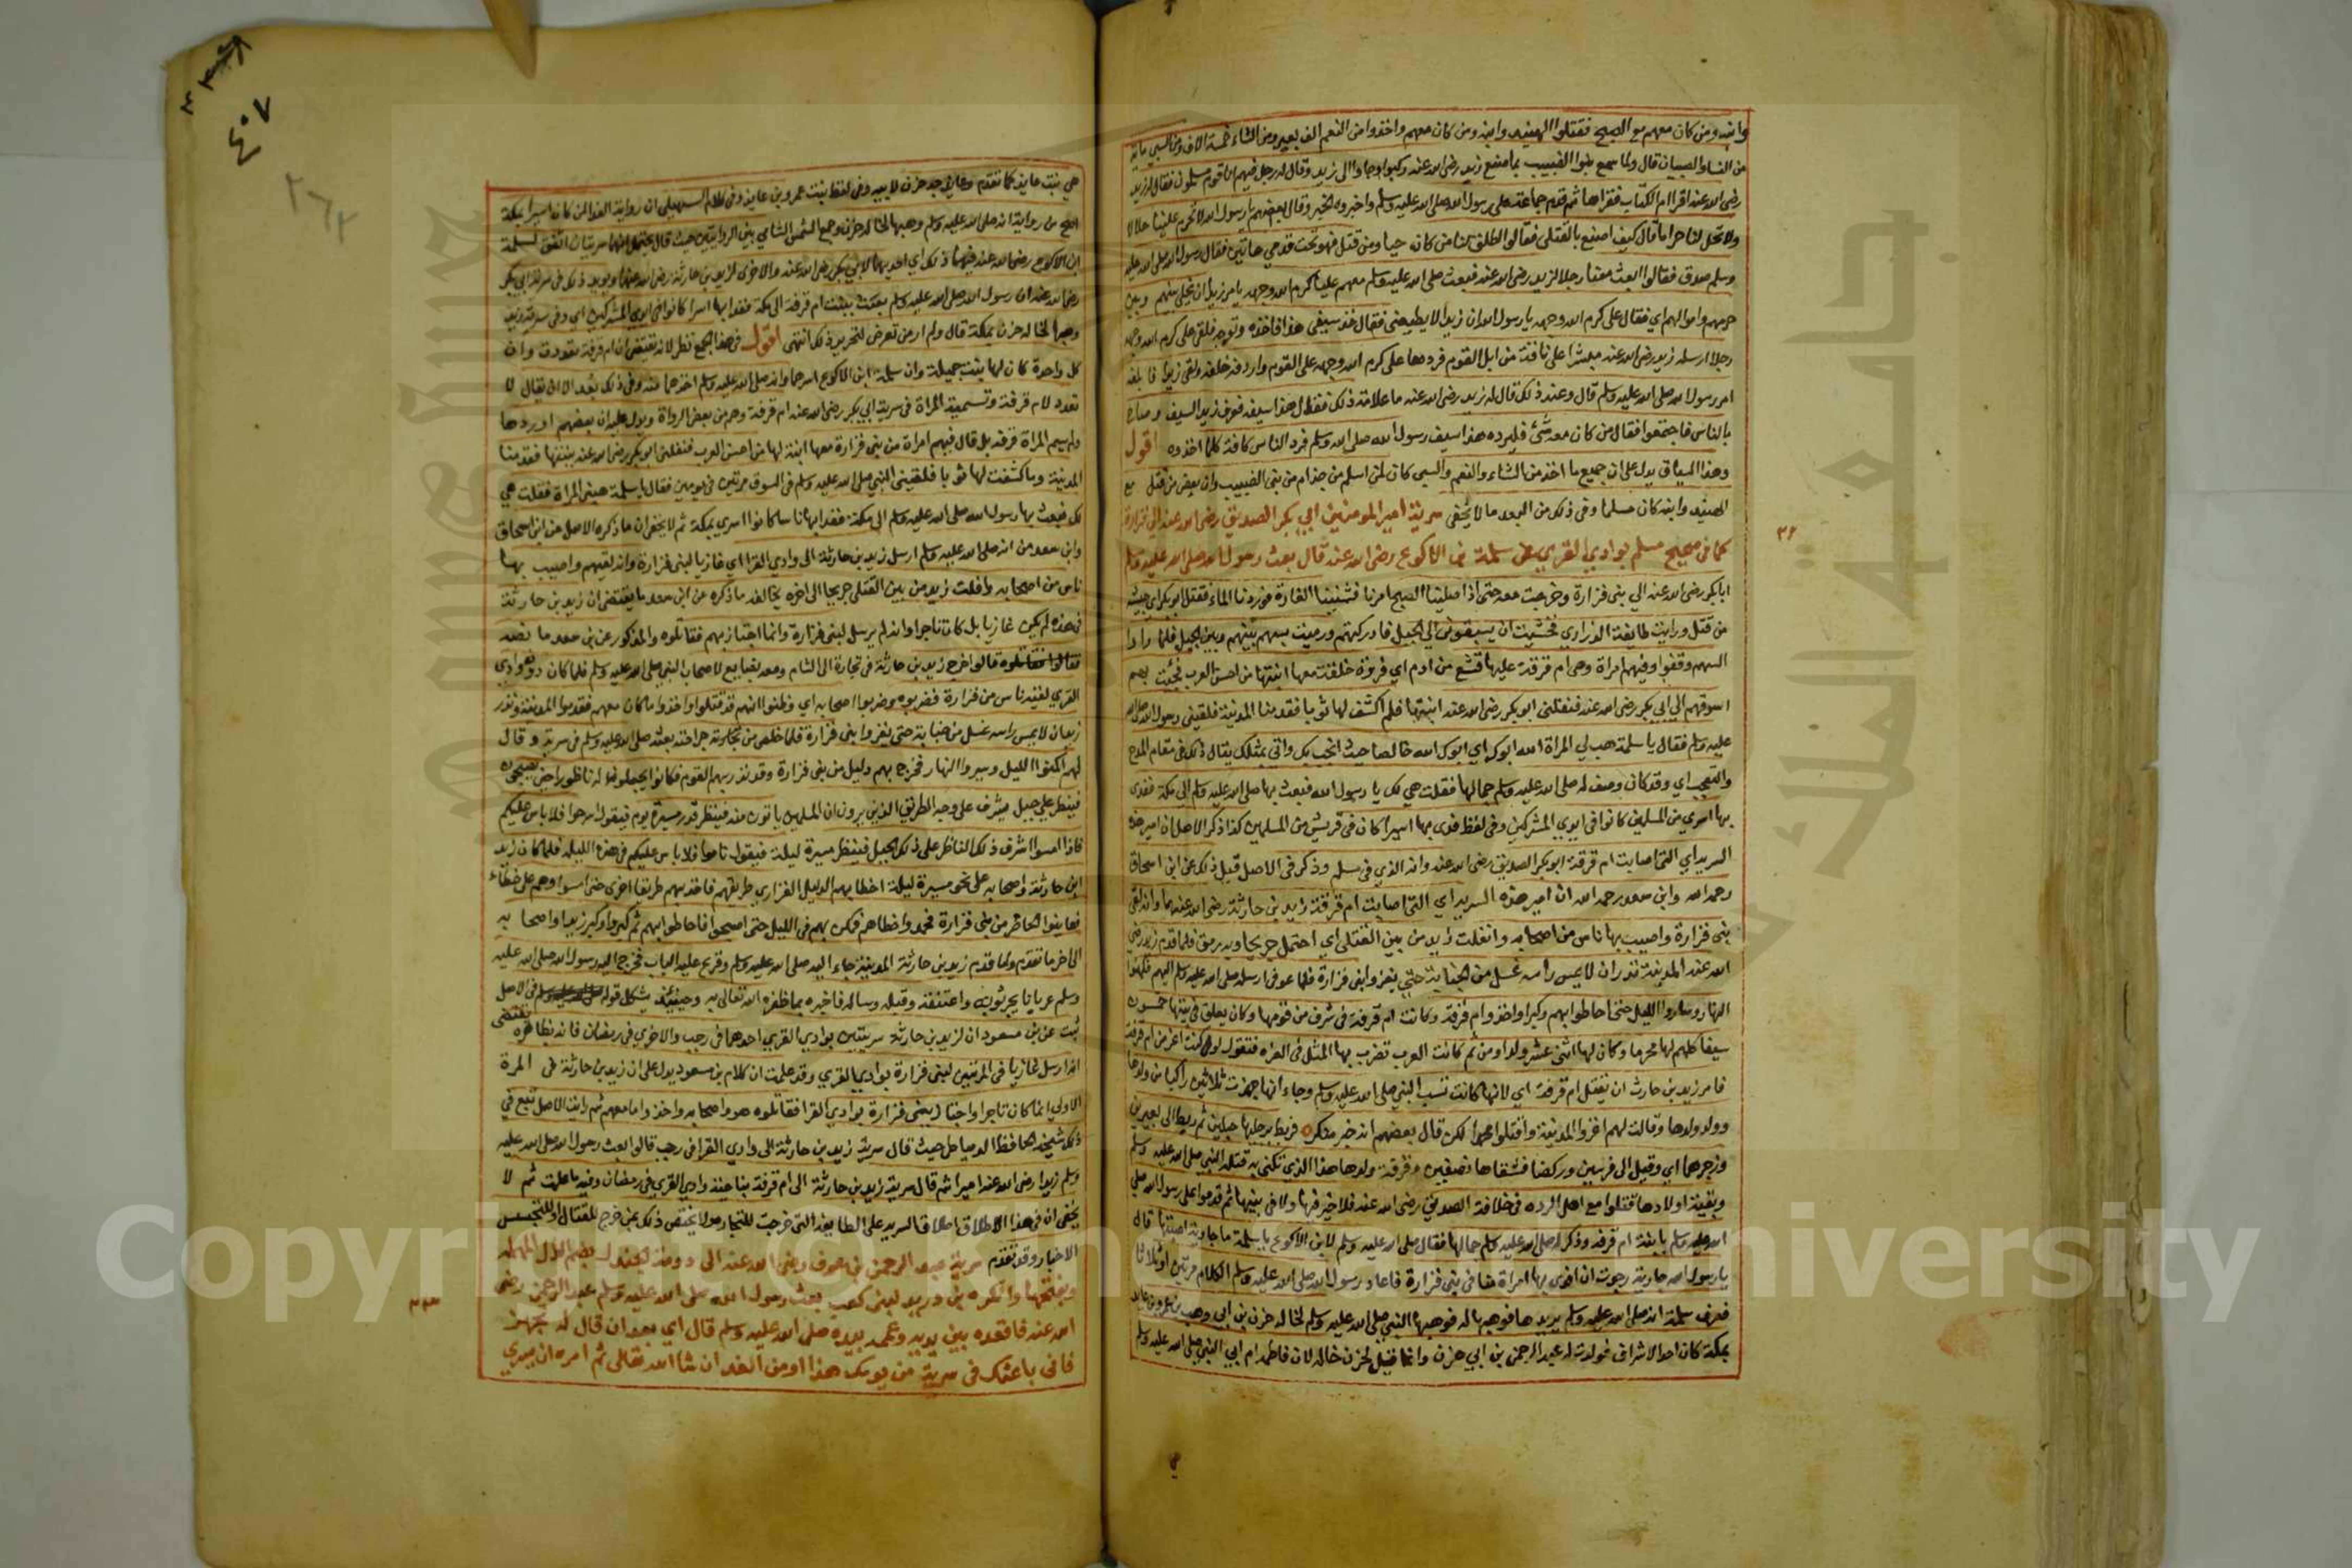 وابنه ومن كان معهم مع الصبح فقتلوا الهنيد وابنه ومن كان معهم واخذوا من النعم الف بعير ومن الشاء خمسة الاف ومن السبي ماية
من النساء والصبيان قال ولما سمع بنوا الضبيب بما صنع زيد رضى الله عنه ركبوا وجاوا الى زيد وقال له رجل منهم انا قوم مسلمون فقال له زيد
رضى الله عنه اقرا ام الكتاب فقراها ثم قدم جماعة على رسول الله صلى الله عليه وسلم واخبروه الخبر وقال بعضهم يا رسول الله لا تحرم علينا حلالا
ولا تحل لنا حراما قال كيف اصنع بالقتلى فقالوا اطلق لنا من كان حيا ومن قتل فهو تحت قدمي هاتين فقال رسول الله صلى الله عليه
وسلم صدق فقالوا ابعث معنا رجلا لزيد رضى الله عنه فبعث صلى الله عليه وسلم معهم عليا كرم الله وجهه يامر زيدا ان يخلي بينهم وبين
حرمهم واموالهم اي فقال على كرم الله وجهه يا رسول الله ان زيدا لا يطيعنى فقال خذ سيفى هذا فاخذه وتوجه فلقى على كرم الله وجهه
رجلا ارسله زيد رضى الله عنه مبشرا على ناقة من ابل القوم فردها على كرم الله وجهه على القوم واردفه خلفه ولقى زيدا فابلغه
امر رسول الله صلى الله عليه وسلم قال وعند ذلك قال له زيد رضى الله عنه ما علامة ذلك فقال هذا سيفه فعرف زيد السيف وصاح
بالناس فاجتمعوا فقال من كان معه شئ فليرده هذا سيف رسول الله صلى الله وسلم فرد الناس كافة كلما اخذوه اقول
وهذا السياق يدل على ان جميع ما اخذ من الشاء والنعم والسبي كان لمن اسلم من جذام من بنى الضبيب وان بعض من قتل مع
الهنيد وابنه كان مسلما وفى ذلك من البعد ما لا يخفى سرية امير المومنين ابي بكر الصديق رضى الله عنه الى فزارة
كما فى صحيح مسلم بوادي القرى عن سلمة بن الاكوع رضى الله عنه قال بعث رسول الله صلى الله عليه وسلم
ابا بكر رضى الله عنه الي بنى فزارة وخرجت معه حتى اذا صلينا الصبح امرنا فشنينا الغارة فوردنا الماء فقتل ابو بكر اي جيشه
من قتل ورايت طايفة الذراري فخشيت ان يسبقونى الى الجبل فادركتهم ورميت بسهم بينهم وبين الجبل فلما راوا
السهم وقفوا وفيهم امراة وهى ام قرفة عليها قشع من ادم اي فروة خلقة معها ابنتها من احسن العرب فجئت بهم
اسوقهم الى ابي بكر رضى الله عنه فنفلنى ابو بكر رضى الله عنه ابنتها فلم اكشف لها ثوبا فقدمنا المدينة فلقينى رسول الله صلى الله
عليه وسلم فقال يا سلمة هب لي المراة لله ابوك اي ابوك لله خالصا حيث انجب بك واتى بمثلك يقال ذلك فى مقام المدح
والتعجب اي وقد كان وصف له صلى الله عليه وسلم جمالها فقلت هي لك يا رسول الله فبعث بها صلى الله عليه وسلم الى مكة ففدى
بها اسرى من المسلمين كانوا فى ايدي المشركين وفى لفظ فدى بها اسيرا كان فى قريش من المسلمين كذا ذكر الاصل ان امير هذه
السرية اي التى اصابت ام قرفة ابو بكر الصديق رضى الله عنه وانه الذي فى مسلم وذكر فى الاصل قبيل ذلك عن ابن اسحاق
رحمه الله وابن سعد رحمه الله ان امير هذه السرية اي التى اصابت ام قرفة زيد بن حارثة رضى الله عنهما وانه لقى
بنى فزارة واصيب بها ناس من اصحابه وانفلت زيد من بين القتلى اي احتمل جريحا وبه رمق فلما قدم زيد رضى
الله عنه المدينة نذر ان لا يمس راسه غسل من الجنابة حتى يغزو بنى فزارة فلما عوفى ارسله صلى الله عليه وسلم اليهم فكمنوا
النهار وساروا الليل حتى احاطوا بهم وكبروا واخذوا ام قرفة وكانت ام قرفة فى شرف من قومها وكان يعلق فى بيتها خمسون
سيفا كلهم لها محرما وكان لها اثنى عشر ولدا ومن ثم كانت العرب تضرب بها المثل فى العزه فتقول لو كنت اعز من ام قرفة
فامر زيد بن حارث ان تقتل ام قرفة اي لانها كانت تسب النبى صلى الله عليه وسلم وجاء انها جهزت ثلاثين راكبا من ولدها
وولد ولدها وقالت لهم اغزوا المدينة واقتلوا محمدا لكن قال بعضهم انه خبر منكر فربط برجليها حبلين ثم ربط الى بعيرين
وزجرهما اي وقيل الى فرسين وركضا فشقاها نصفين وقرفة ولدها هذا الذي تكنى به قتله النبى صلى الله عليه وسلم
وبقية اولادها قتلوا مع اهل الرده فى خلافة الصديق رضى الله عنه فلا خير فيها ولا فى بنيها ثم قدموا على رسول الله صلى
الله عليه وسلم بابنة ام قرفة وذكر له صلى الله عليه وسلم جمالها فقال صلى الله عليه وسلم لابن الاكوع يا سلمة ما جارية اصبتها قال
يا رسول الله جارية رجوت ان افدى بها امراة منا فى بنى فزارة فاعاد رسول الله صلى الله عليه وسلم الكلام مرتين او ثلاثا
فعرف سلمة انه صلى الله عليه وسلم يريدها فوهبها له فوهبها النبى صلى الله عليه وسلم لخاله حزن بن ابي وهب بن عمرو بن عايذ
بمكة كان احد الاشراف فولدت له عبد الرحمن بن ابي حزن وانما قيل لحزن خاله لان فاطمة ام ابي النبى صلى الله عليه وسلم
٣٢
هي بنت عايذ كما تقدم وعايذ جد حزن لابيه وفى لفظ بنت عمرو بن عايذ وفى كلام السهيلى ان رواية الفدا لمن كان اسيرا بمكة
اصح من رواية انه صلى الله عليه وسلم وهبها لخاله حزن وجمع الشمس الشامي بين الروايتين حيث قال يحتمل انهما سريتان اتفق لسلمة
ابن الاكوع رضى الله عنه فيهما ذلك اي احديهما لابي بكر رضى الله عنه والاخرى لزيد بن حارثة رضى الله عنهما ويويد ذلك فى سرية ابي بكر
رضى الله عنه ان رسول الله صلى الله عليه وسلم بعث ببنت ام قرفة الى مكة ففدا بها اسرا كانوا فى ايدي المشركين اي وفى سرية زيد
وهبها لخاله حزن بمكة قال ولم ار من تعرض لتحرير ذلك انتهى اقول فى هذا الجمع نظر لانه يقتضى ان ام قرفة تعددت وان
كل واحدة كان لها بنت جميلة وان سلمة ابن الاكوع اسرهما وانه صلى الله عليه وسلم اخذهما منه وفى ذلك بعد الا ان يقال لا
تعدد لام قرفة وتسمية المراة فى سرية ابي بكر رضى الله عنه ام قرفة وهم من بعض الرواة ويدل عليه ان بعضهم اوردها
ولم يسم المراة قرفة بل قال فيهم امراة من بنى فزارة معها ابنة لها من احسن العرب فنفلنى ابو بكر رضى الله عنه بنتها فقدمنا
المدينة وما كشفت لها ثوبا فلقينى النبى صلى الله عليه وسلم فى السوق مرتين فى يومين فقال يا سلمة هبنى المراة فقلت هي
لك فبعث بها رسول الله صلى الله عليه وسلم الى مكة ففدا بها ناسا كانوا اسرى بمكة ثم لا يخفى ان ما ذكره الاصل عن ابن اسحاق
وابن سعد من انه صلى الله عليه وسلم ارسل زيد بن حارثة الى وادي القرا اي غازيا لبنى فزارة وانه لقيهم واصيب بها
ناس من اصحابه وافلت زيد من بين القتلى جريحا الى اخره يخالفه ما ذكره عن ابن سعد ما يقتضى ان زيد بن حارثة
فى هذه لم يكن غازيا بل كان تاجرا وانه لم يرسل لبنى فزارة وانما اجتاز بهم فقاتلوه والمذكور عن بن سعد ما نصه
قالوا خرج زيد بن حارثة فى تجارة الى الشام ومعه بضايع لاصحاب النبى صلى الله عليه وسلم فلما كان دون وادي
القرى لقيه ناس من فزارة فضربوه وضربوا اصحابه اي وظنوا انهم قد قتلوا واخذوا ما كان معهم فقدموا المدينة ونذر
زيد ان لا يمس راسه غسل من جنابة حتى يغزو بنى فزارة فلما خلص من جراحته بعثه صلى الله عليه وسلم فى سرية وقال
لهم اكمنوا الليل وسيروا النهار فخرج بهم دليل من بنى فزارة وقد نذر بهم القوم فكانوا يجعلون له ناظورا حين يصبحون
فينظر على جبل مشرف على وجه الطريق الذين يرون ان المسلمين ياتون منه فينظر قدر مسيرة يوم فيقول اسرحوا فلا باس عليكم
فاذا امسوا اشرف ذلك الناظر على ذلك الجبل فينظر مسيرة ليلة فيقول ناموا فلا باس عليكم فى هذه الليلة فلما كان زيد
ابن حارثة واصحابه على نحو مسيرة ليلة اخطا بهم الدليل الفزاري طريقهم فاخذ بهم طريقا اخرى حتى امسوا وهم على خطاء
فعاينوا الحاضر من بنى فزارة فحمدوا خطاهم فكمن بهم فى الليل حتى اصبحوا فاحاطوا بهم ثم كبروا وكبر زيد واصحابه
الى اخر ما تقدم ولما قدم زيد بن حارثة المدينة جاء اليه صلى الله عليه وسلم وقرع عليه الباب فخرج اليه رسول الله صلى الله عليه
وسلم عريانا يجر ثوبه واعتنقه وقبله وساله فاخبره بما ظفره الله تعالى به وحينيذ يشكل قوله فى الاصل
ثبت عن بن مسعود ان لزيد بن حارثة سريتين بوادي القرى احدهما فى رجب والاخرى فى رمضان فانه بظاهره يقتضى
انه ارسل غازيا فى المرتين لبنى فزارة بوادي القرى وقد علمت ان كلام بن مسعود يدل على ان زيد بن حارثة فى المرة
الاولى انما كان تاجرا واجتاز ببنى فزارة بوادي القرا فقاتلوه هو واصحابه واخذوا ما معهم ثم رايت الاصل تبع فى
ذلك شيخه الحافظ الدمياطى حيث قال سرية زيد بن حارثة الى وادي القرا فى رجب قالوا بعث رسول الله صلى الله عليه
وسلم زيدا رضى الله عنه اميرا ثم قال سرية زيد بن حارثة الى ام قرفة بناحية وادي القرى فى رمضان وفيه ما علمت ثم لا
يخفى ان فى هذا الاطلاق اطلاق السرية على الطايفة التى خرجت للتجارة ولا يختص ذلك بمن خرج للقتال او للتجسس
الاخبار وقد تقدم سرية عبد الرحمن بن عوف رضى الله عنه الى دومة الجندل بضم الدال المهملة
وبفتحها وانكره بن دريد لبنى كعب بعث رسول الله صلى الله عليه وسلم عبد الرحمن رضى
الله عنه فاقعده بين يديه وعممه بيده صلى الله عليه وسلم قال اي بعد ان قال له تجهز
فانى باعثك فى سرية من يومك هذا او من الغد ان شا الله تعالى ثم امره ان يسري
٤٠٧
٣٦٢
Copyright © King Saud University